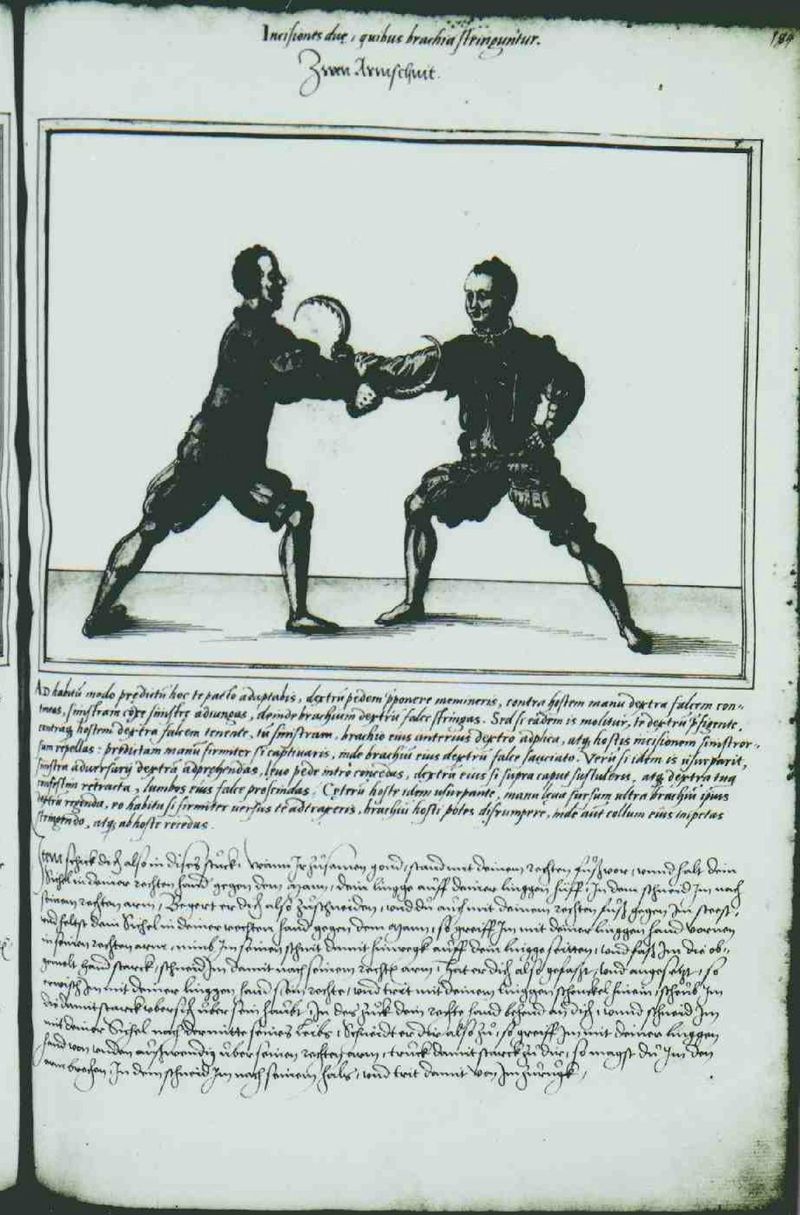 Incisiones duę, quibus brachia stringuntur.
189
Zwen Armschnit.
AD habitũ modo prędictũ hoc te pacto adaptabis, dextrũ pedem pponere memineris, contra hostem manu dextra falcem con-
tineas, sinistram coxę sinistrę adiungas, deinde brachium dextrũ falce stringas. Sed si eadem is molitur, te dextrũ pfigente,
contraq hostem dextra falcem tenente, tu sinistram, brachio eius anterius dextro adplica, atq hostis incisionem sinistror-
sum repellas: prędictam manũ firmiter si captuaris, inde brachiũ eius dextrũ falce sauciato. Verũ si idem is usurparit,
sinistra adversarij dextrã adprehendas, levo pede intro concedas, dextrũ eius si supra caput sustuleris, atq dextra tua
confestim retracta, lumbos eius falce proscindas. Cęterũ hoste idem usurpante, manu leva sursum ultra brachiũ ipsius
dextrũ regenda, eo habitu si firmiter versus te adtraxeris, brachiũ hosti potes disrumpere, inde aut collum eius inpetas
stringendo, atq ab hoste recedas.
Item schick dich also in dises stuck, Wann Ir zusamen gond, stand mit deinen rechten fuß vor, unnd halt dein
Sichel in deiner rechten hand gegen dem mann, dein lingge auff deiner linggen hüff, In dem schneid Im nach
seinem rechten arm, Begert er dich also zuschneiden, und du auch mit deinem rechten fuß gegen Im steest,
und heltst dein Sichel in deiner rechten hand gegen dem mann, so greiff Im mit deiner linggen hand vornen
in seinen rechten arm, nimb Im seinen schnit damit hinwegk auff dein lingge seitten, und faß Im die ob-
gemelt hand starck, schneid Im damit nach seinem rechten arm, Hat er dich also gefasst, und angesetzt, so
erwisch Im mit deiner linggen hand sein rechte, und trit mit deinem linggen schenckel hinein, scheub Im
die damit starck ubersich uber sein haubt, In des zuck dein rechte hand behend an dich, unnd schneid Im
mit deiner Sichel nach der mitte seines Leibs, Schneidt er dir also zu, so greiff Im mit deiner linggen
hand von unden außwendig uber seinen rechten arm, truck damit starck zu dir, so magst du Im den
arm brechen, In dem schneid Im nach seinem hals, und trit damit von Im zuruck,